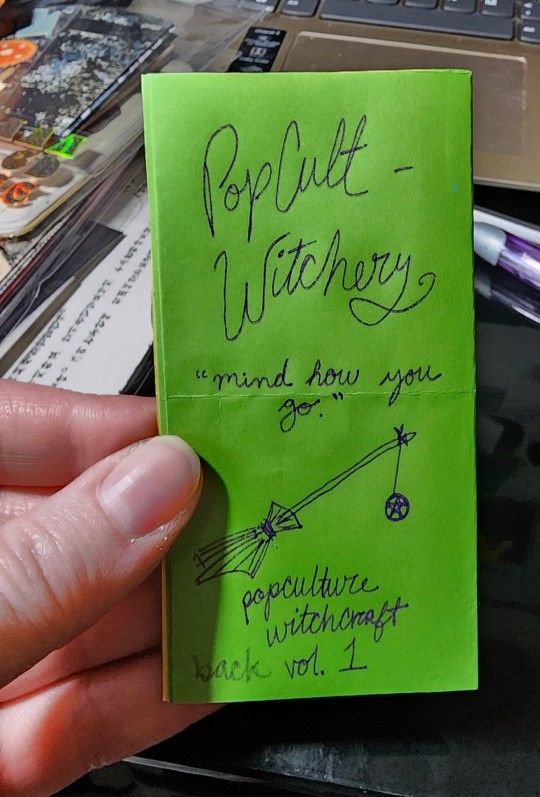 PopCult -
Witchery
"mind how you
go."
popculture
witchcraft
back vol. 1